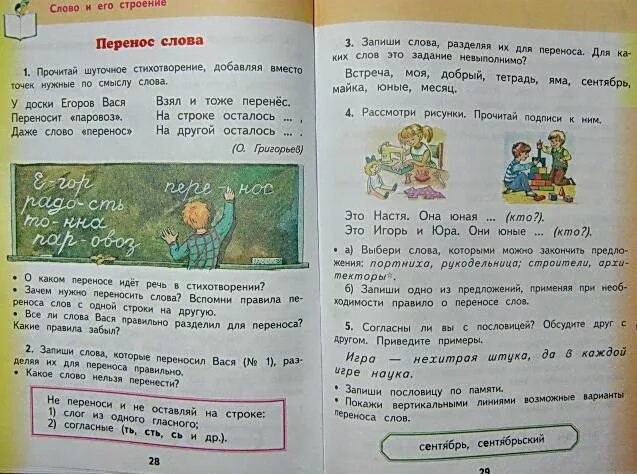 Слово и его строение
Перенос слова
1. Прочитай шуточное стихотворение, добавляя вместо
точек нужные по смыслу слова.
У доски Егоров Вася
Переносит «паровоз».
Даже слово «перенос»
Взял и тоже перенёс.
На строке осталось ... ,
На другой осталось ... .
(О. Григорьев)
Е-гор
радо-сть
то-нна
пар-овоз
пере-нос
• О каком переносе идёт речь в стихотворении?
• Зачем нужно переносить слова? Вспомни правила пе-
реноса слов с одной строки на другую.
• Все ли слова Вася правильно разделил для переноса?
Какие правила забыл?
2. Запиши слова, которые переносил Вася (№ 1), раз-
деляя их для переноса правильно.
• Какое слово нельзя перенести?
Не переноси и не оставляй на строке:
1) слог из одного гласного;
2) согласные (ть, сть, сь и др.).
28
3. Запиши слова, разделяя их для переноса. Для ка-
ких слов это задание невыполнимо?
Встреча, моя, добрый, тетрадь, яма, сентябрь,
майка, юные, месяц.
4. Рассмотри рисунки. Прочитай подписи к ним.
Это Настя. Она юная ... (кто?).
Это Игорь и Юра. Они юные ... (кто?).
• а) Выбери слова, которыми можно закончить предло-
жения: портниха, рукодельница; строители, архи-
текторы*.
б) Запиши одно из предложений, применяя при необ-
ходимости правило о переносе слов.
5. Согласны ли вы с пословицей? Обсудите друг с
другом. Приведите примеры.
Игра — нехитрая штука, да в каждой
игре наука.
• Запиши пословицу по памяти.
• Покажи вертикальными линиями возможные варианты
переноса слов.
сентябрь, сентябрьский
29